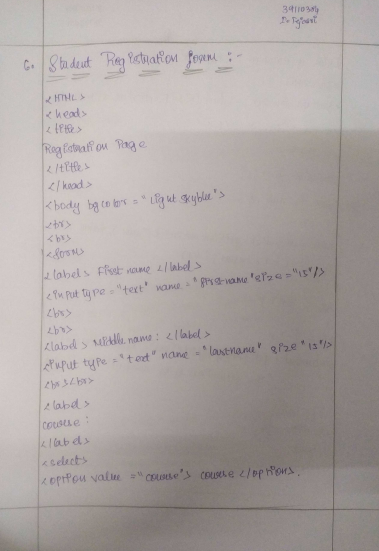 39110384
6. Student Registration form :-
<HTML>
<head>
<title>
Registration Page
</title>
</head>
<body bgcolor = "Light skyblue">
<br>
<br>
<form>
<label> First name </label>
<input type = "text" name = "first name" size = "15"/>
<br>
<br>
<label> Middle name : </label>
<input type = "text" name = "lastname" size "15"/>
<br><br>
<label>
course :
</label>
<select>
<option value = "course"> course </option>.